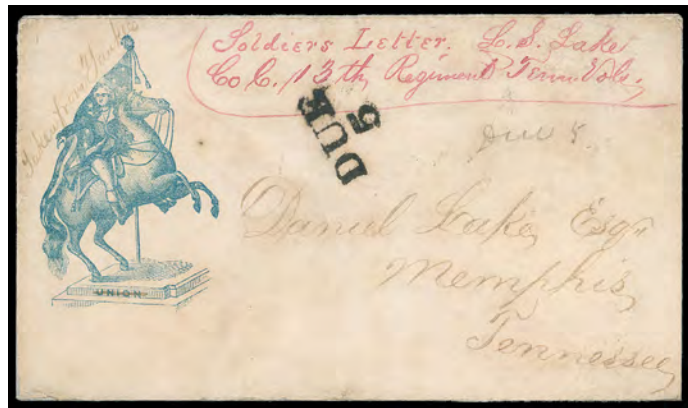 Taken from Yankees
Soldiers Letter. L. S. Lake
Co C. 13th Regiment Tenn. Vols.
DUE
5
Due 5
Daniel Lake, Esqr
Memphis,
Tennessee,
UNION